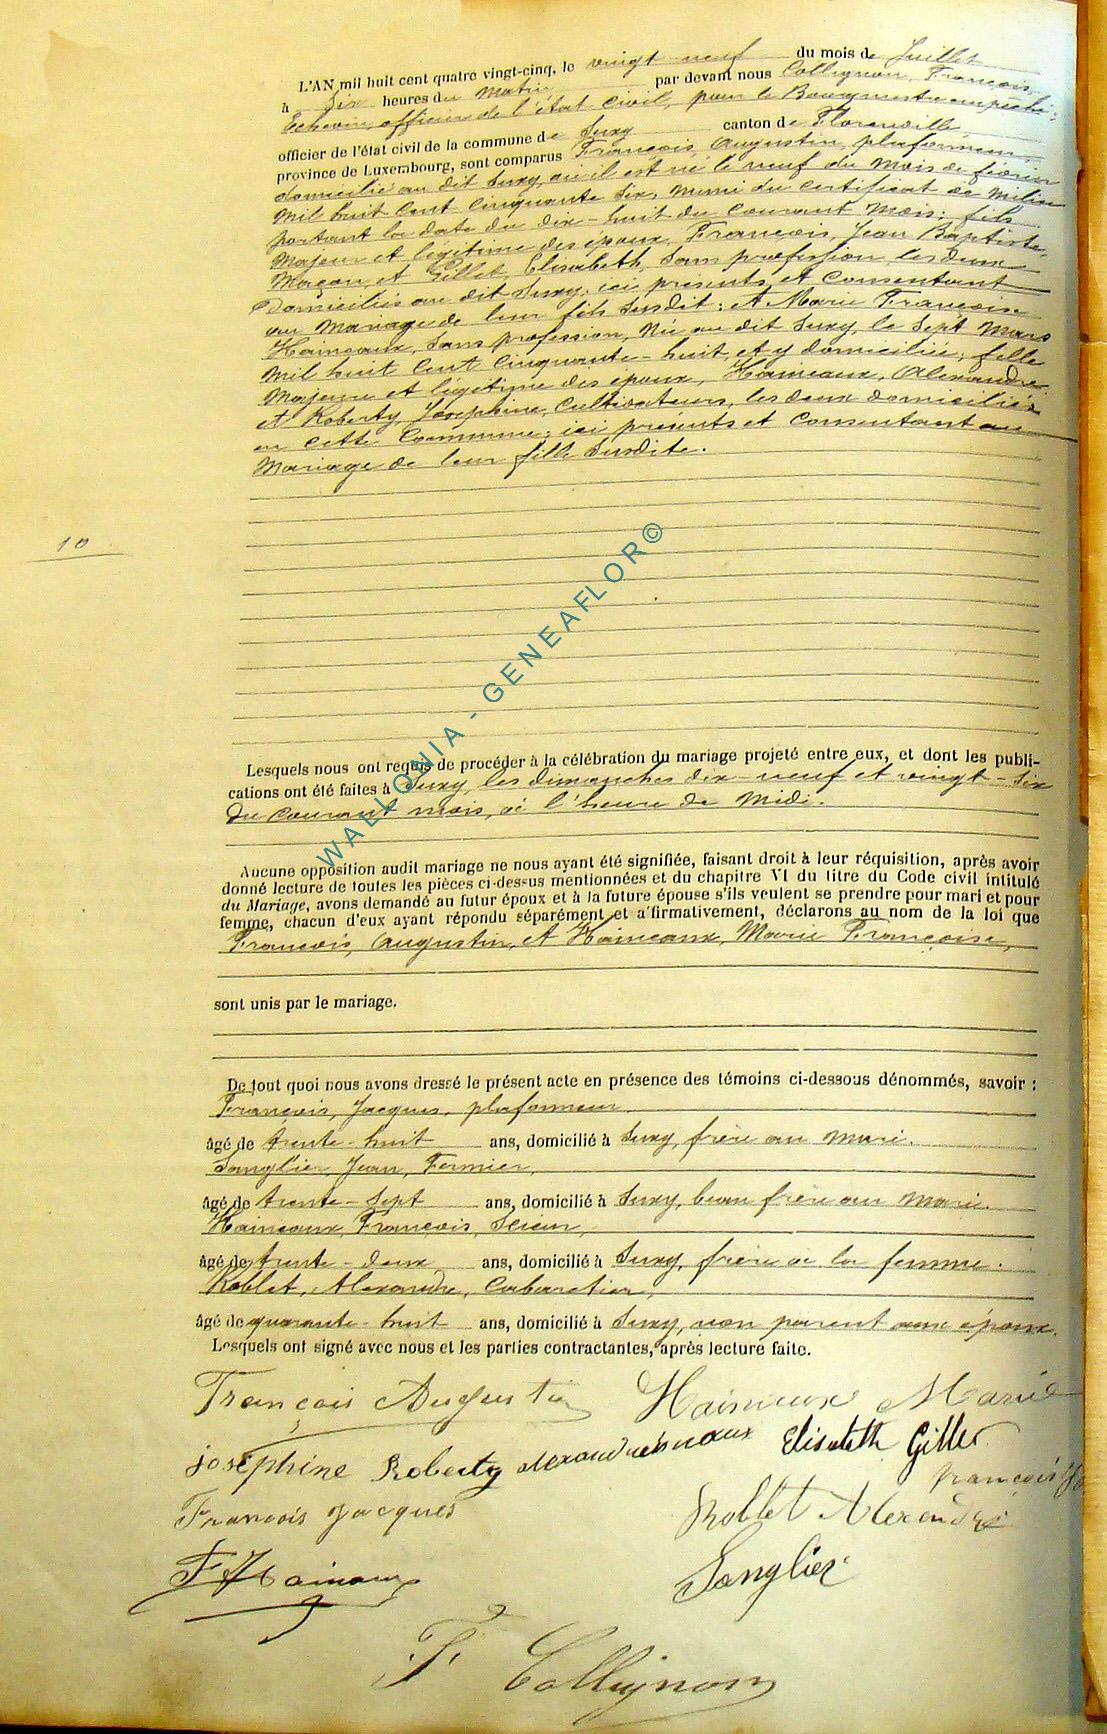 L'AN mil huit cent quatre vingt-cinq, le vingt neuf du mois de Juillet
à Six heures du Matin par devant nous Collignon, François,
Echevin, officier de l'état civil, pour le Bourgmestre empêché;
officier de l'état civil de la commune de Suxy canton de Florenville
province de Luxembourg, sont comparus François, Augustin, plafonneur,
domicilié au dit Suxy, où il est né le neuf du mois de février
mil huit cent cinquante six, muni du certificat de milice
portant la date du dix-huit du courant mois; fils
majeur et légitime des époux, François, Jean Baptiste,
Maçon, et Gillet, Elisabeth, sans profession, les deux
domiciliés au dit Suxy, ici présents et consentant
au mariage de leur fils susdit; et Marie Françoise
Haineaux, sans profession, née au dit Suxy, le sept Mars
mil huit cent cinquante-huit, et y domiciliée; fille
majeure et légitime des époux, Haineaux, Alexandre
et Roberty, Joséphine, Cultivateurs, les deux domiciliés
en cette Commune; ici présents et consentant au
mariage de leur fille susdite.
10
WALLONIA - GENEAFLOR©
Lesquels nous ont requis de procéder à la célébration du mariage projeté entre eux, et dont les publi-
cations ont été faites à Suxy, les dimanches dix-neuf et vingt-six
du courant mois, à l'heure de Midi.
Aucune opposition audit mariage ne nous ayant été signifiée, faisant droit à leur réquisition, après avoir
donné lecture de toutes les pièces ci-dessus mentionnées et du chapitre VI du titre du Code civil intitulé
du Mariage, avons demandé au futur époux et à la future épouse s'ils veulent se prendre pour mari et pour
femme, chacun d'eux ayant répondu séparément et affirmativement, déclarons au nom de la loi que
François, Augustin, et Haineaux, Marie Françoise,
sont unis par le mariage.
De tout quoi nous avons dressé le présent acte en présence des témoins ci-dessous dénommés, savoir :
François, Jacques, plafonneur
âgé de trente-huit ans, domicilié à Suxy, frère au mari.
Sanglier, Jean, Fermier,
âgé de trente-sept ans, domicilié à Suxy, beau frère au mari.
Haineaux, François, Scieur,
âgé de trente-deux ans, domicilié à Suxy, frère à la femme.
Roblet, Alexandre, Cabaretier,
âgé de quarante-huit ans, domicilié à Suxy, non parent aux époux.
Lesquels ont signé avec nous et les parties contractantes, après lecture faite.
François Augustin Hainieaux Marie
joséphine Roberty Elisabeth Gillet
françois
François Jacques Roblet Alexandre
F Hainaux Sanglier
F. Collignon